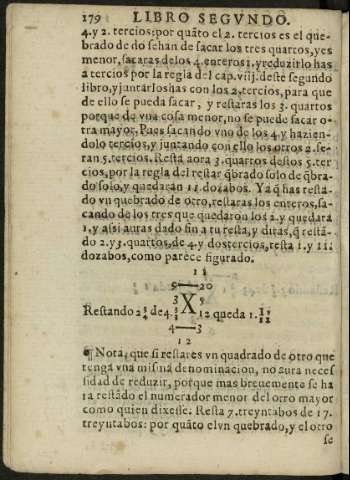 179 LIBRO SEGVNDO.
4.y 2. tercios: por quãto el 2. tercios es el que-
brado de dõ sehan de sacar los tres quartos, y es
menor, sacaras delos 4. enteros 1. y reduzirlo has
a tercios por la regla del cap. viij. deste segundo
libro, y juntarloshas con los 2. tercios, para que
de ello se pueda sacar, y restaras los 3. quartos
porque de vna cosa menor, no se puede sacar o-
tra mayor. Pues sacando vno de los 4. y hazien-
dolo tercios, y juntando con ello los otros 2. se-
ran 5. tercios. Resta aora 3. quartos destos 5. ter
cios, por la regla del restar q̃brado solo de q̃bra-
do solo, y quedaran 11. dozabos. Ya q̃ has resta-
do vn quebrado de otro, restaras los enteros, sa-
cando de los tres que quedaron los 2. y quedara
1. y assi auras dado fin a tu resta, y diras, q̃ restã-
do 2. y 3. quartos, de 4. y dostercios, resta 1. y 11.
dozabos, como parece figurado.
11
9 20
3 X 5
Restando 2 3/4 de 4. 2/3 12 queda 1. 11/12
4 3
12
¶ Nota, que si restares vn quadrado de otro que
tenga vna misma denominacion, no aura neces
sidad de reduzir, porque mas breuemente se ha
ra restãdo el numerador menor del otro mayor
como quien dixesse. Resta 7. treyntabos de 17.
treyntabos: por quãto el vn quebrado, y el otro
se